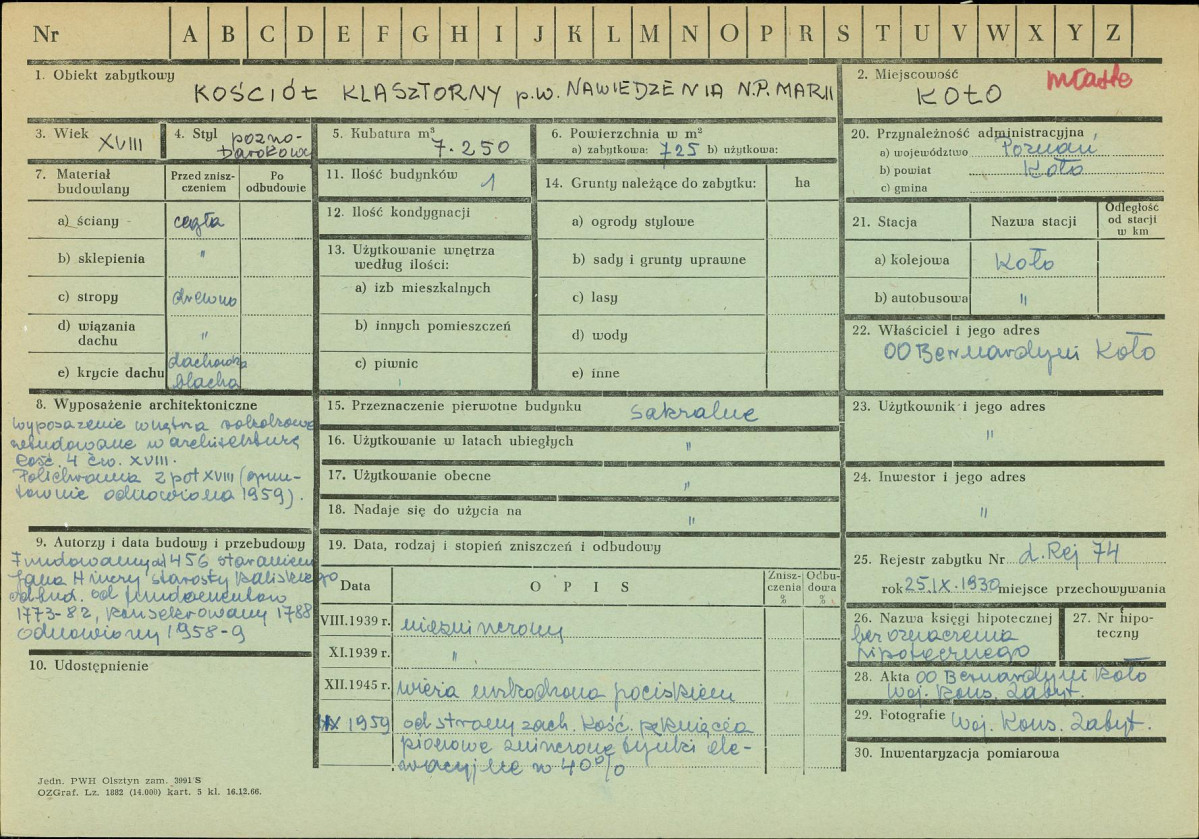 Nr A B C D E F G H I J K L M N O P R S T U V W X Y Z
1. Obiekt zabytkowy
KOŚCIÓŁ KLASZTORNY p.w. NAWIEDZENIA N.P. MARII
2. Miejscowość
KOŁO
miasto
3. Wiek XVIII
4. Styl pozno-
barokowy
5. Kubatura m³
7.250
6. Powierzchnia w m²
a) zabytkowa: 725 b) użytkowa:
20. Przynależność administracyjna
a) województwo Poznań
b) powiat Koło
c) gmina
7. Materiał budowlany
Przed zniszczeniem
Po odbudowie
a) ściany cegła
b) sklepienia "
c) stropy drewno
d) wiązania dachu "
e) krycie dachu dachówka
blacha
11. Ilość budynków 1
12. Ilość kondygnacji
13. Użytkowanie wnętrza
według ilości:
a) izb mieszkalnych
b) innych pomieszczeń
c) piwnic
14. Grunty należące do zabytku: ha
a) ogrody stylowe
b) sady i grunty uprawne
c) lasy
d) wody
e) inne
21. Stacja Nazwa stacji Odległość od stacji w km
a) kolejowa Koło
b) autobusowa "
22. Właściciel i jego adres
OO Bernardyni Koło
8. Wyposażenie architektoniczne
wyposażenie wnętrza rokokowe
wbudowane w architekturę
kość. 4 ćw. XVIII.
Polichromia 2 poł XVIII (grun-
townie odnowiona 1959).
15. Przeznaczenie pierwotne budynku sakralne
16. Użytkowanie w latach ubiegłych "
17. Użytkowanie obecne "
18. Nadaje się do użycia na "
23. Użytkownik i jego adres
"
24. Inwestor i jego adres
"
9. Autorzy i data budowy i przebudowy
Fundowany 1456 staraniem
Jana Hinczy starosty kaliskiego
odbud. od fundamentów
1773-82, konsekrowany 1788
odnowiony 1958-9
10. Udostępnienie
19. Data, rodzaj i stopień zniszczeń i odbudowy
Data OPIS Zniszczenia % Odbudowa %
VIII.1939 r. niezniszczony
XI.1939 r. "
XII.1945 r. wieża uszkodzona pociskiem
IX 1959 od strony zach. kość. pęknięcia
pionowe zniszczone tynki ele-
wacyjne w 40%
25. Rejestr zabytku Nr d. Rej 74
rok 25.IX.1930 miejsce przechowywania
26. Nazwa księgi hipotecznej
bez oznaczenia
hipotecznego
27. Nr hipoteczny
28. Akta OO Bernardyni Koło
Woj. Kons. Zabyt.
29. Fotografie Woj. Kons. Zabyt.
30. Inwentaryzacja pomiarowa
Jedn. PWH Olsztyn zam. 3991/S
OZGraf. Lz. 1882 (14.000) kart. 5 kl. 16.12.66.